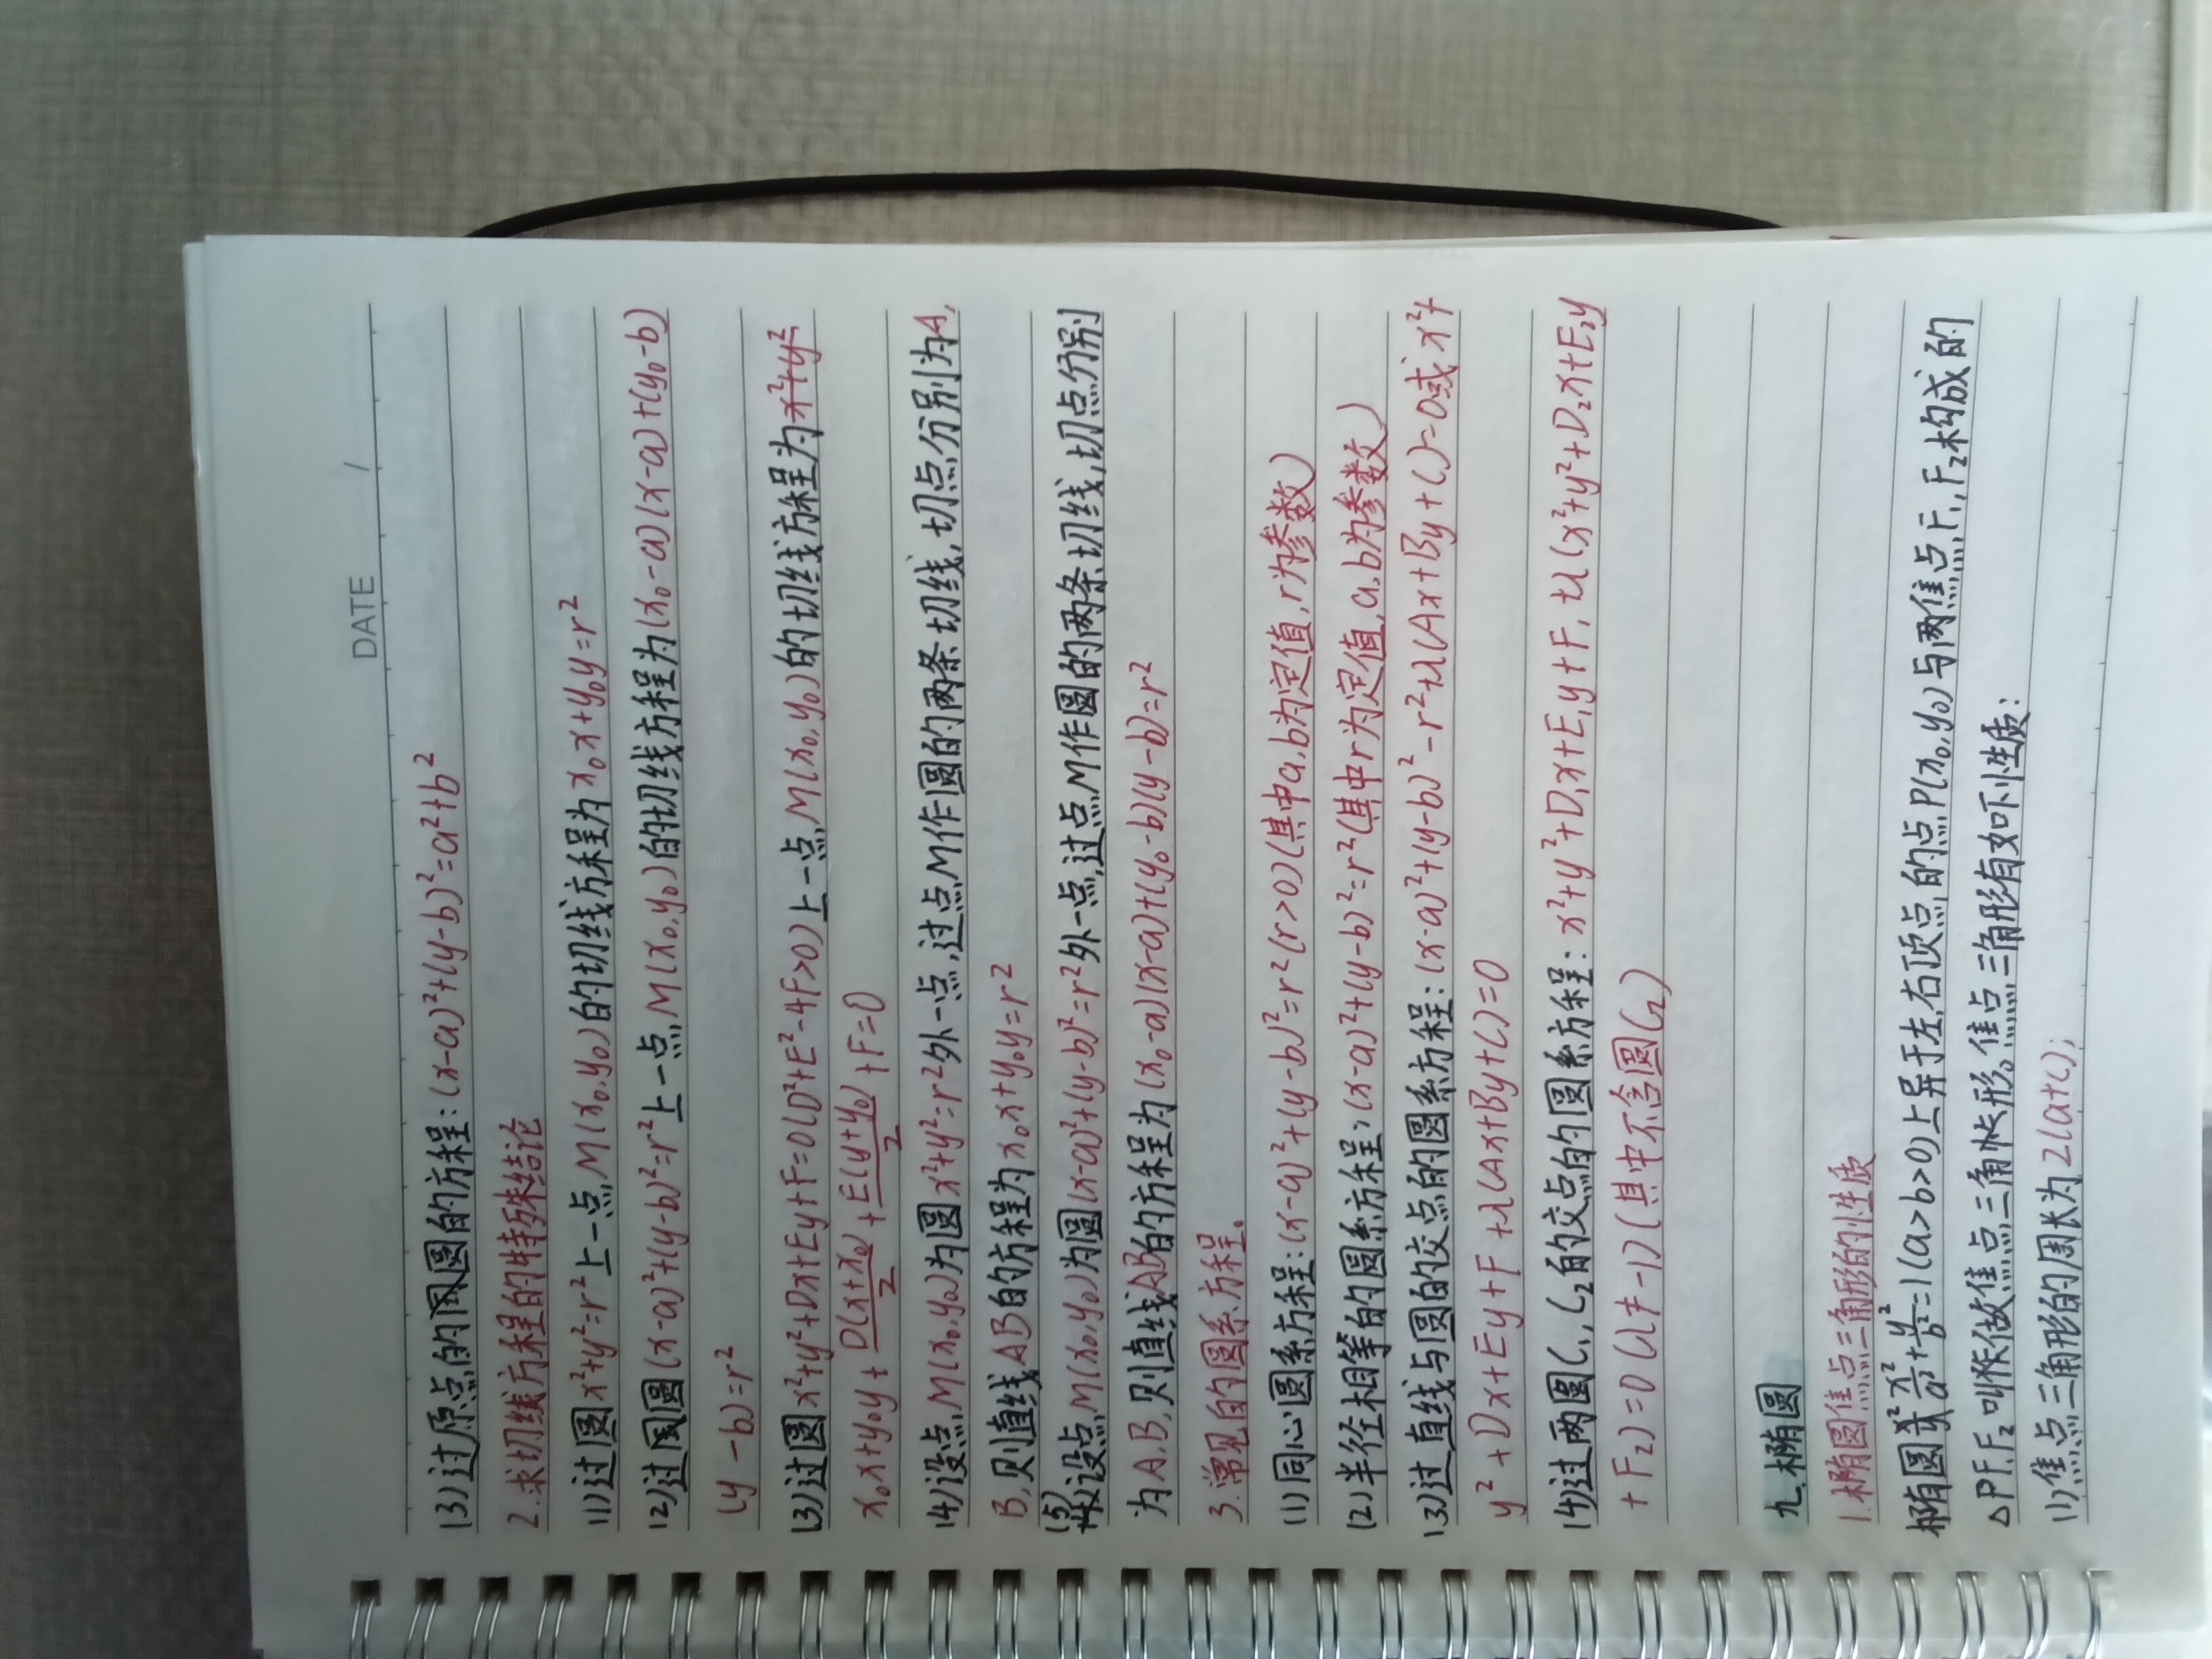 DATE /
(3)过原点的圆的方程:(x-a)²+(y-b)²=a²+b²
2.求切线方程的特殊结论
(1)过圆x²+y²=r²上一点M(x₀,y₀)的切线方程为x₀x+y₀y=r²
(2)过圆(x-a)²+(y-b)²=r²上一点M(x₀,y₀)的切线方程为(x₀-a)(x-a)+(y₀-b)
(y-b)=r²
(3)过圆x²+y²+Dx+Ey+F=0(D²+E²-4F>0)上一点M(x₀,y₀)的切线方程为x²+y²
x₀x+y₀y+D(x+x₀)/2+E(y+y₀)/2+F=0
(4)设点M(x₀,y₀)为圆x²+y²=r²外一点,过点M作圆的两条切线,切点分别为A,
B,则直线AB的方程为x₀x+y₀y=r²
(5)设点M(x₀,y₀)为圆(x-a)²+(y-b)²=r²外一点,过点M作圆的两条切线,切点分别
为A,B,则直线AB的方程为(x₀-a)(x-a)+(y₀-b)(y-b)=r²
3.常见的圆系方程。
(1)同心圆系方程:(x-a)²+(y-b)²=r²(r>0)(其中a,b为定值,r为参数)
(2)半径相等的圆系方程:(x-a)²+(y-b)²=r²(其中r为定值,a,b为参数)
(3)过直线与圆的交点的圆系方程:(x-a)²+(y-b)²-r²+λ(Ax+By+C)=0或x²+
y²+Dx+Ey+F+λ(Ax+By+C)=0
(4)过两圆C₁,C₂的交点的圆系方程:x²+y²+D₁x+E₁y+F₁+λ(x²+y²+D₂x+E₂y
+F₂)=0(λ≠-1)(其中不含圆C₂)
九.椭圆
1.椭圆焦点三角形的性质
椭圆x²/a²+y²/b²=1(a>b>0)上异于左,右顶点的点P(x₀,y₀)与两焦点F₁,F₂构成的
△PF₁F₂叫做焦点三角形。焦点三角形有如下性质:
(1)焦点三角形的周长为2(a+c);